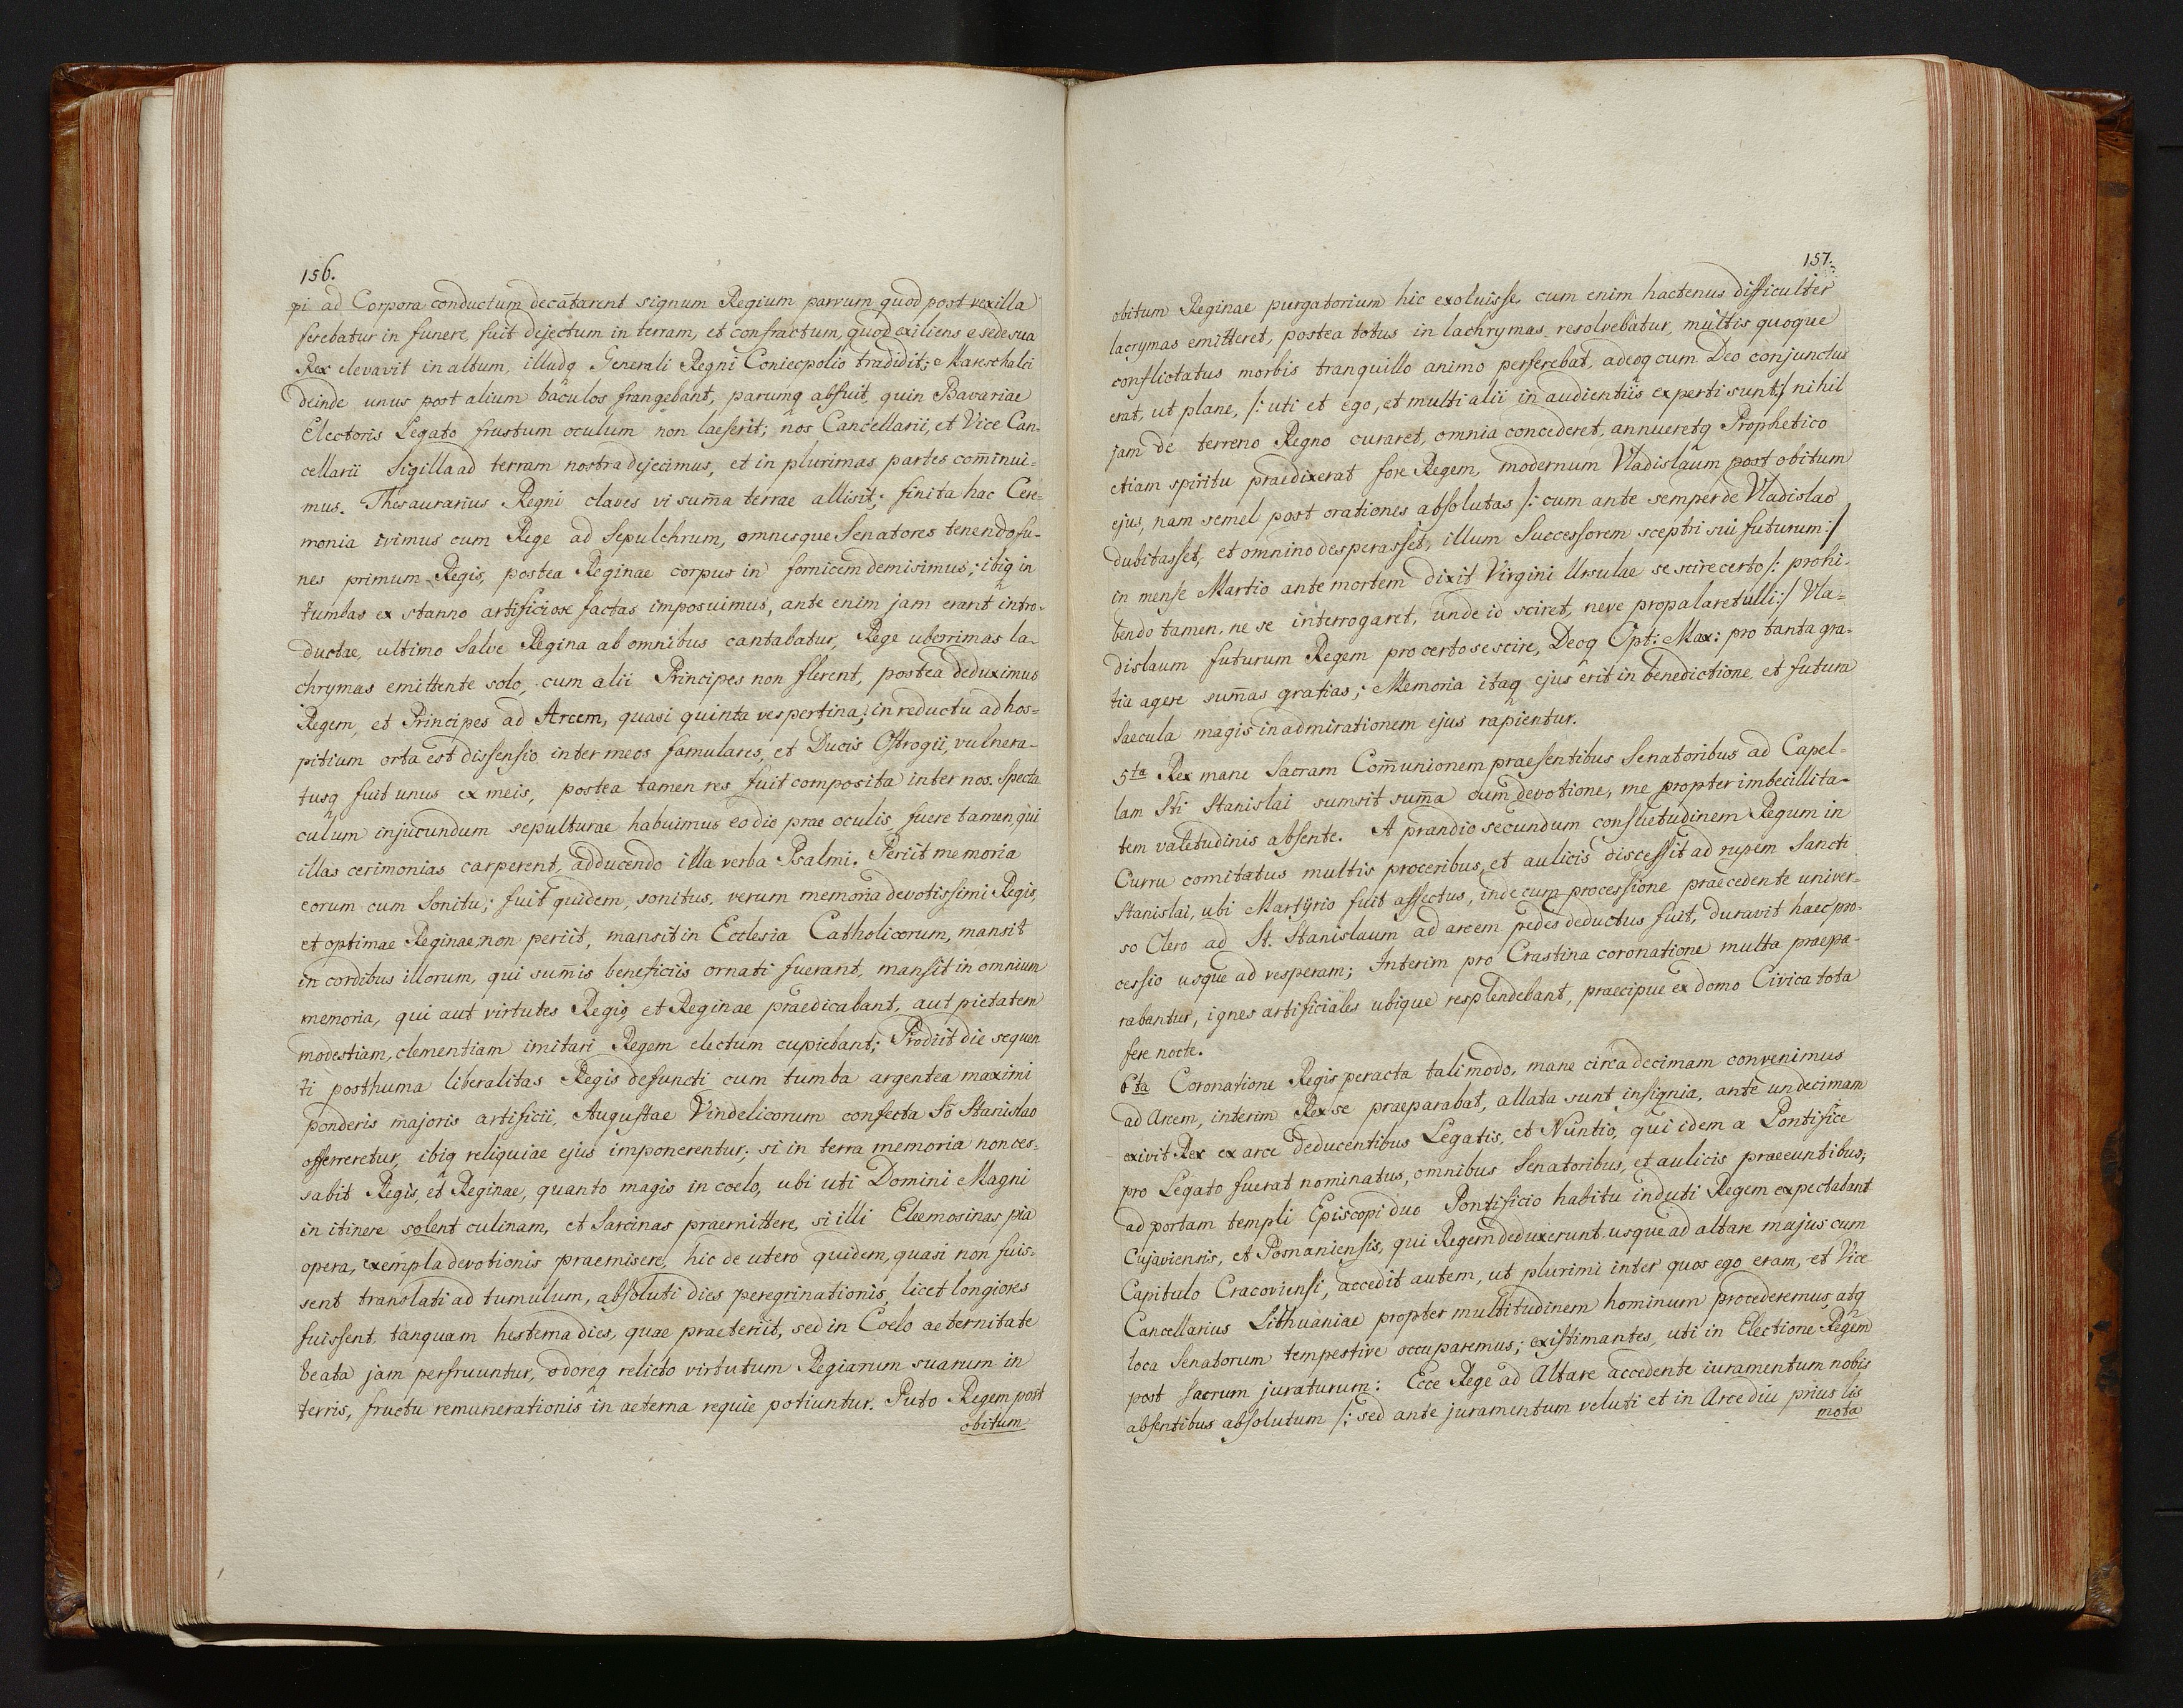 156.
pi ad Corpora conductum decātarent signum Regium parvum quod post vexilla
ferebatur in funere, fuit dejectum in terram, et confractum, quod exiliens e sede sua
Rex elevavit in altum, illudq Generali Regni Coniecpolio tradidit; Mareschalci
deinde unus post alium baculos frangebant, parumq abfuit, quin Bavariae
Electoris Legato frustum oculum non laeserit; nos Cancellarii, et Vice Can-
cellarii Sigilla ad terram nostra dejecimus, et in plurimas partes com̄inui-
mus. Thesaurarius Regni claves vi sum̄a terrae allisit; finita hac Cere-
monia ivimus cum Rege ad Sepulchrum, omnesque Senatores tenendo fu-
nes primum Regis, postea Reginae corpus in fornicem demisimus; ibiq in
tumbas ex stanno artificiose factas imposuimus, ante enim jam erant intro-
ductae, ultimo Salve Regina ab omnibus cantabatur, Rege uberrimas la-
chrymas emittente solo, cum alii Principes non flerent, postea deduximus
Regem, et Principes ad Arcem, quasi quinta vespertina; in reductu ad hos-
pitium orta est dissensio inter meos famulares, et Ducis Ostrogii, vulnera-
tusq fuit unus ex meis, postea tamen res fuit composita inter nos. Specta
culum injucundum sepulturae habuimus eo die prae oculis, fuere tamen, qui
illas cerimonias carperent, adducendo illa verba Psalmi. Periit memoria
eorum cum Sonitu; fuit quidem, sonitus, verum memoria devotissimi Regis,
et optimae Reginae, non periit, mansit in Ecclesia Catholicorum, mansit
in cordibus illorum, qui sum̄is beneficiis ornati fuerant, mansit in omnium
memoria, qui aut virtutes Regis, et Reginae praedicabant, aut pietatem
modestiam, clementiam imitari Regem electum cupiebant; Prodiit die sequen
ti posthuma liberalitas Regis defuncti cum tumba argentea maximi
ponderis majoris artificii, Augustae Vindelicorum confecta S̄o Stanislao
offerreretur, ibiq reliquiae ejus imponerentur; si in terra memoria non ces-
sabit Regis, et Reginae, quanto magis in coelo, ubi uti Domini Magni
in itinere solent culinam, et Sarcinas praemittere, si illi Eleemosinas pia
opera, exempla devotionis praemisere, hic de utero quidem, quasi non fuis-
sent translati ad tumulum, absoluti dies peregrinationis, licet longiores
fuissent, tanquam hesterna dies, quae praeteriit, sed in Coelo aeternitate
beata jam perfruuntur, odoreq relicto virtutum Regiarum suarum in
terris, fructu remunerationis in aeterna requie potiuntur. Puto Regem post
obitum
157.
obitum Reginae purgatorium hic exoluisse, cum enim hactenus difficulter
lacrymas emitteret, postea totus in lachrymas resolvebatur, multis quoque
conflictatus morbis tranquillo animo perferebat, adeoq cum Deo conjunctus
erat, ut plane, /: uti et ego, et multi alii in audientiis experti sunt :/ nihil
jam de terreno Regno curaret, omnia concederet, annueretq Prophetico
etiam spiritu praedixerat fore Regem, modernum Vladislaum post obitum
ejus, nam semel post orationes absolutas /: cum ante semper de Vladislao
dubitasset, et omnino desperasset, illum Successorem sceptri sui futurum :/
in mense Martio ante mortem dixit Virgini Ursulae se scire certo /: prohi-
bendo tamen, ne se interrogaret, unde id sciret, neve propalaret ulli :/ Vla-
dislaum futurum Regem pro certo se scire, Deoq Opt: Max: pro tanta gra-
tia agere sum̄as gratias; Memoria itaq ejus erit in benedictione, et futura
Saecula magis in admirationem ejus rapientur.
5ta Rex mane Sacram Com̄unionem praesentibus Senatoribus ad Capel-
lam Sti Stanislai sumsit sum̄a cum devotione, me propter imbecillita-
tem valetudinis absente. A prandio secundum consuetudinem Regum in
Curru comitatus multis proceribus, et aulicis discessit ad rupem Sancti
Stanislai, ubi Martyrio fuit affectus, inde cum processione praecedente univer-
so Clero ad St. Stanislaum ad arcem pedes deductus fuit, duravit haec pro-
cessio usque ad vesperam; Interim pro Crastina coronatione multa praepa-
rabantur, ignes artificiales ubique resplendebant, praecipue ex domo Civica tota
fere nocte.
6ta Coronatione Regis peracta tali modo, mane circa decimam convenimus
ad Arcem, interim Rex se praeparabat, allata sunt insignia, ante undecimam
exivit Rex ex arce deducentibus Legatis, et Nuntio, qui idem a Pontifice
pro Legato fuerat nominatus, omnibus Senatoribus, et aulicis praeeuntibus;
ad portam templi Episcopi duo Pontificio habitu induti Regem expectabant
Cujaviensis, et Posnaniensis, qui Regem deduxerunt usque ad altare majus cum
Capitulo Cracoviensi, accedit autem, ut plurimi inter quos ego eram, et Vice
Cancellarius Lithuaniae propter multitudinem hominum procederemus, atq
loca Senatorum tempestive occuparemus; existimantes, uti in Electione Regem
post sacrum juraturum: Ecce Rege ad Altare accedente iuramentum nobis
absentibus absolutum /: sed ante juramentum veluti et in Arce diu prius lis
mota